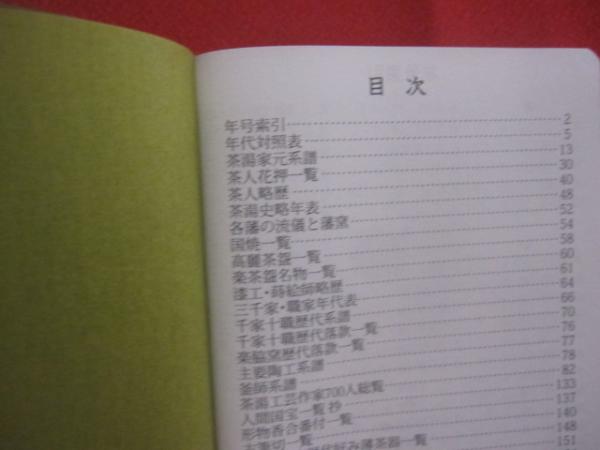 目次
年号索引 2
年代対照表 5
茶湯家元系譜 13
茶人花押一覧 30
茶人略歴 40
茶湯史略年表 48
各藩の流儀と藩窯 52
国焼一覧 54
高麗茶盌一覧 58
楽茶盌名物一覧 60
漆工・蒔絵師略歴 61
三千家・職家年代表 64
千家十職歴代系譜 66
千家十職歴代落款一覧 70
楽脇窯歴代落款一覧 76
主要陶工系譜 77
釜師系譜 78
茶湯工芸作家700人総覧 82
人間国宝一覧抄 133
形物香合番付一覧 137
古筆切一覧 140
好み薄茶器一覧 148
151